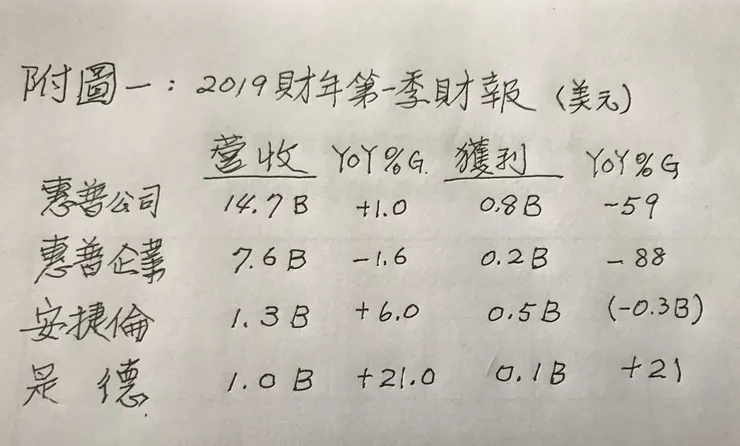 附圖一：2019財年第一季財報（美元）
營收 YoY%G. 獲利 YoY%G
惠普公司 14.7B +1.0 0.8B -59
惠普企業 7.6B -1.6 0.2B -88
安捷倫 1.3B +6.0 0.5B (-0.3B)
是德 1.0B +21.0 0.1B +21